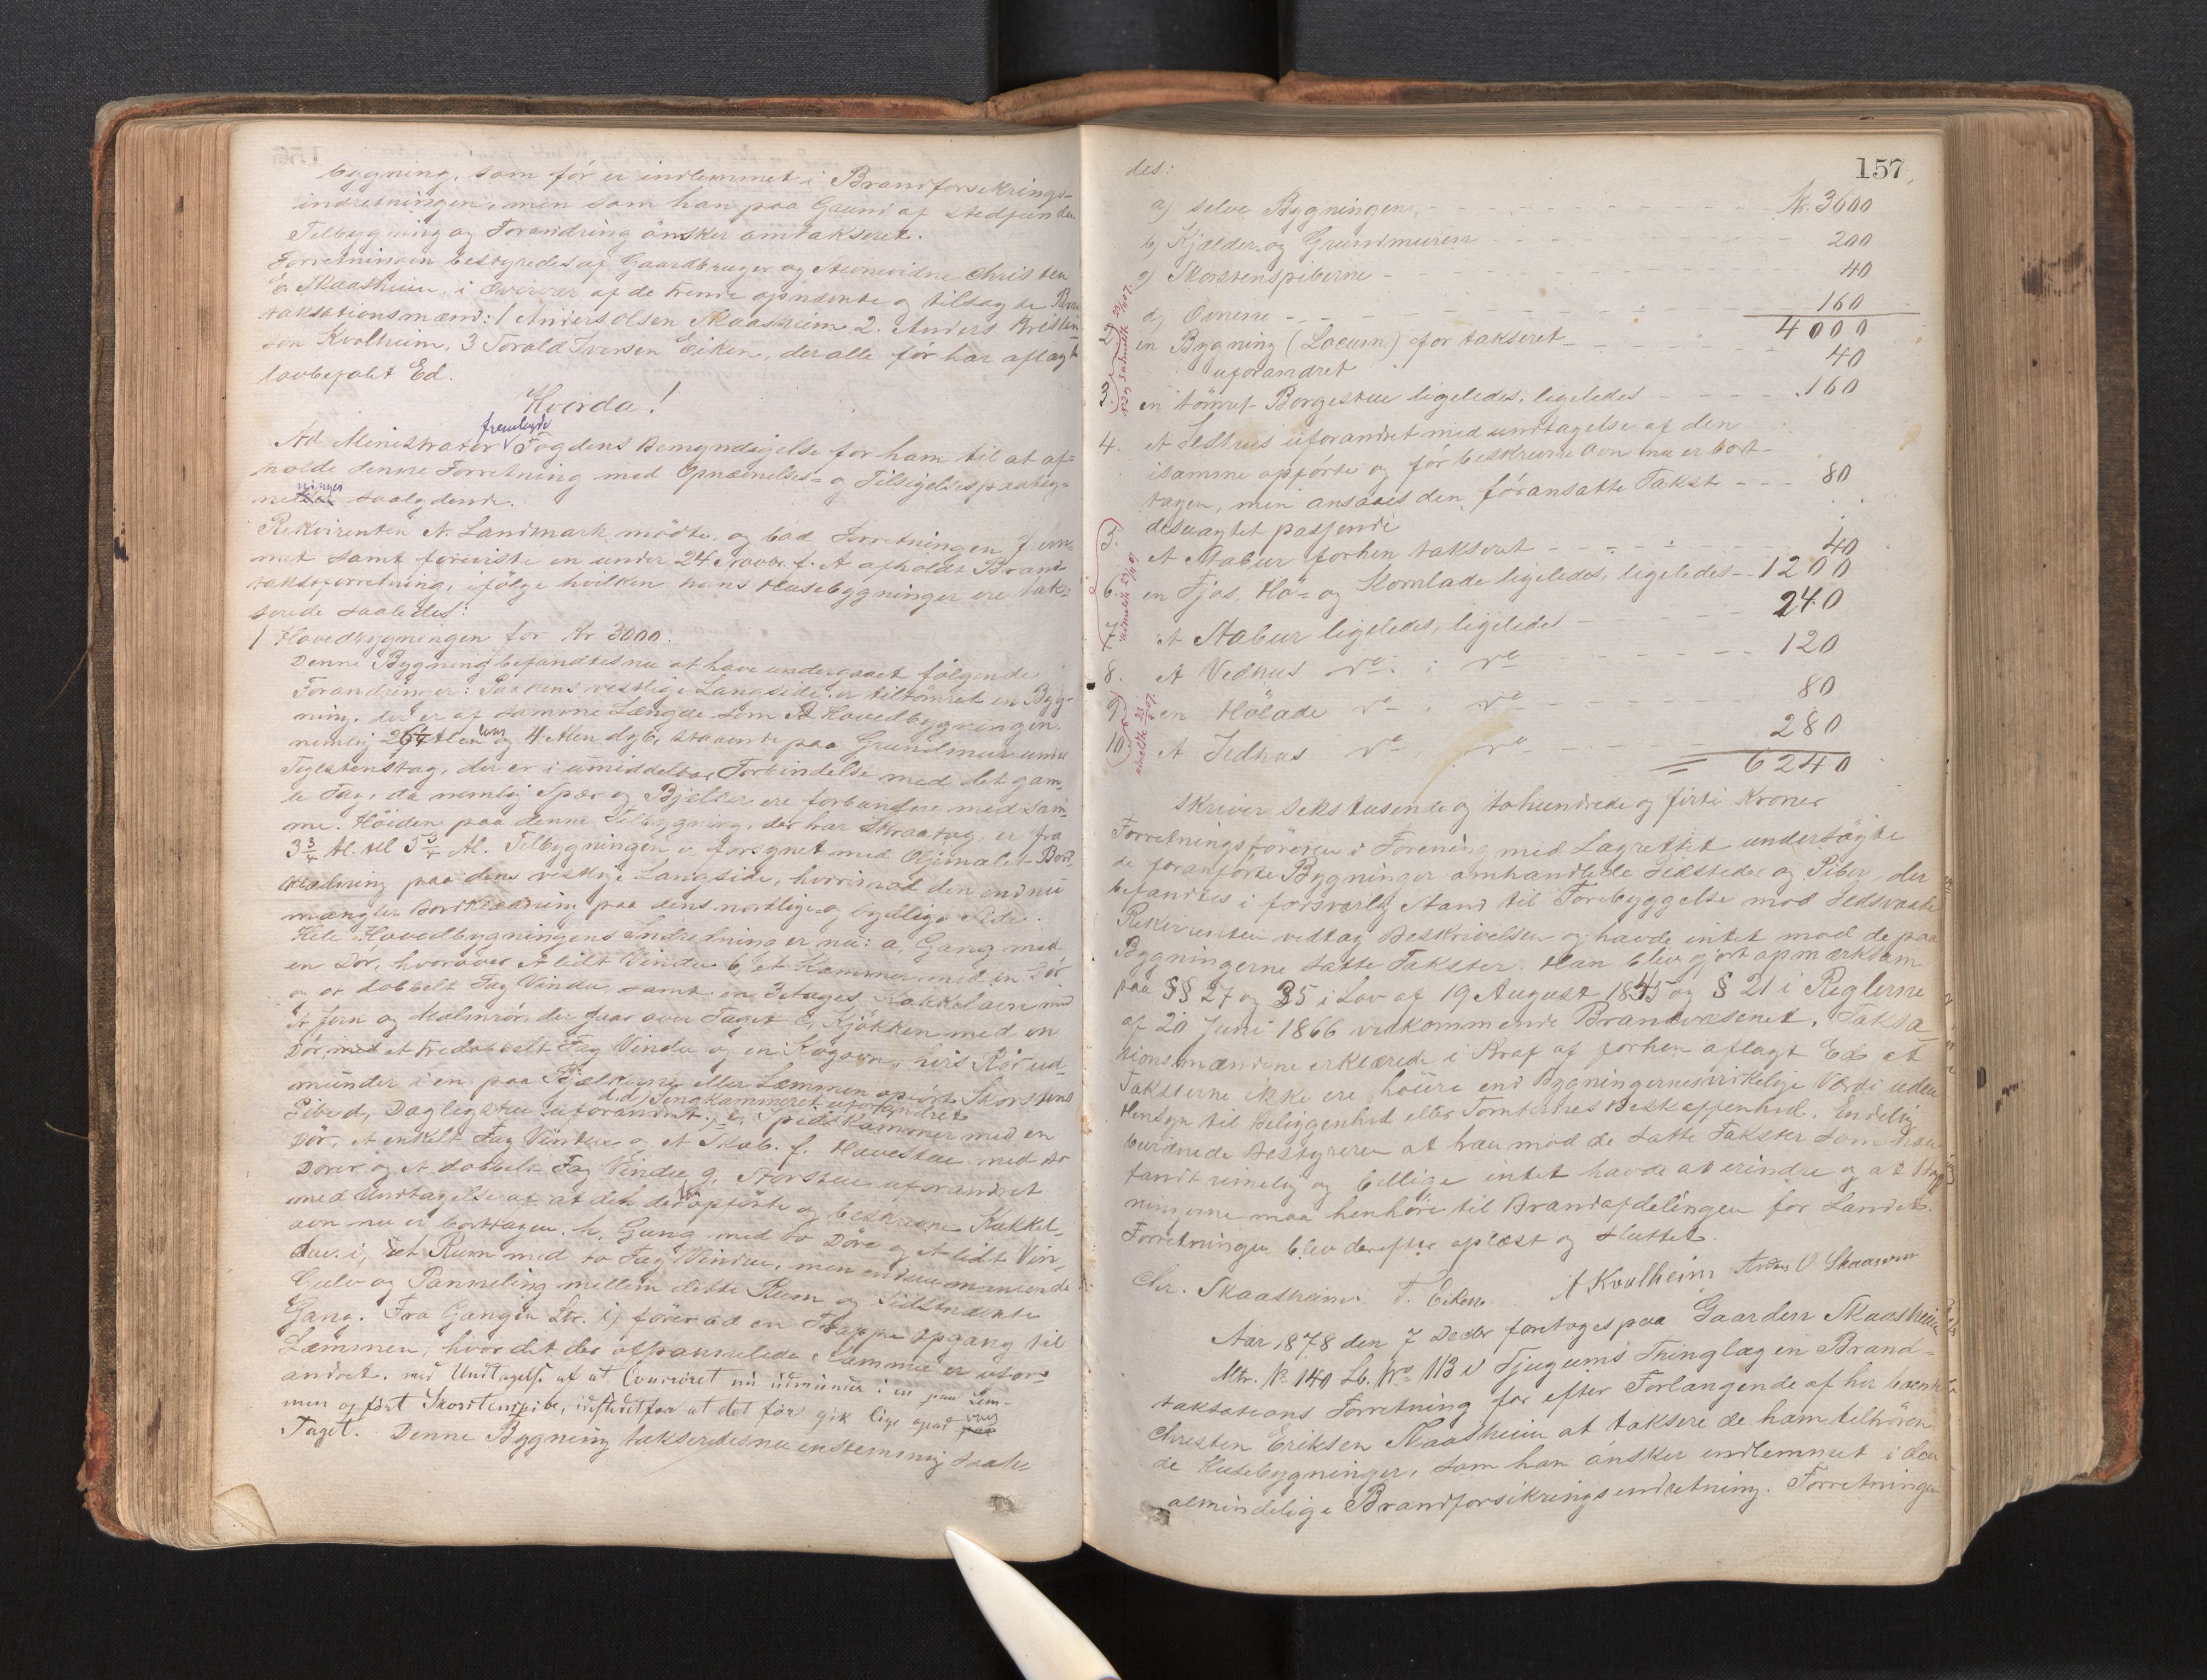 bygning, som før er indlemmet i Brandforsikrings-
indretningen, men som han paa Grund af stedfunden
Tilbygning og Forandring ønsker omtakseret.
Forretningen bestyredes af Gaardbruger og Stevnevidne Christen
E. Skaasheim, i Overvær af de trende opnævnte og tilsagte Brand
taksationsmænd: 1 Anders Olsen Skaasheim 2. Anders Kristen
sen Kvalheim, 3 Torald Iversen Eiken, der alle før har aflagt
lovbefalet Ed.
Hvorda!
fremlagde
Ad Ministrator Fogdens Bemyndigelse for ham til at af-
holde denne Forretning med Opnævnelses- og Tilsigelsespaateg-
ninger saalydende.
Rekvirenten A. Landmark mødte, og bad Forretningen frem-
met samt foreviste en under 24 Novbr. f. A afholdt Brand
taksforretning, ifølge hvilken hans Husebygninger ere tak-
serede saaledes:
1 Hovedbygningen for Kr 3000.
Denne Bygning befandtes nu at have undergaaet følgende
Forandringer: Paa dens vestlige Langside er tiltømret en Byg-
ning, der er af samme Længde som Hovedbygningen
nemlig Alen lang og 4 Alen dyb, staaende paa Grundmur under
Teglstenstag, der er i umiddelbar Forbindelse med det gam-
le Tag, da nemlig Spær og Bjelker ere forbundne med sam-
me. Høiden paa denne Tilbygning, der har Skraatag, er fra
3¾ Al. til 5¾ Al. Tilbygningen er forsynet med Oljemalet Bord-
klædning paa dens vestlige Langside, hvorimod den endnu
mangler Bordklædning paa dens nordlige og sydlige Side.
Hele Hovedbygningens Indredning er nu: a, Gang med
en Dør, hvorover et lidt Vindu b, et Kammer med en Dør
og et dobbelt Fag Vindu, samt en 3 Etages Kakkelovn med
et Jern og Malmrør, der gaar over Taget c, Kjøkken med en
Dør, med et tredobbelt Fag Vindu og en Kogovn, hvis Rør ud-
munder i en paa Bjælkerne eller Læmmen opført Skorstens
Pibe d, Dagligstue uforandret, d.d, Sengkammeret uforandret e, Spiskammer med en
Dør, et enkelt Fag Vindu og et Skab. f. Havestue med to
Dører og et dobbelt Fag Vindu g, Storstue uforandret
med Undtagelse af at den der var opførte og beskrevne Kakkel-
ovn nu er borttagen. h, Gang med to Døre og et lidt Vin-
due. i, et Rum med to Fag Vinduer, men endnu manlende
Gulv og Panneling mellem dette Rum og sidstnævnte
Gang. Fra Gangen Ltr. i) fører ad en Trappe Opgang til
Læmmen, hvor det der afpannelede Kammer er ufor-
andret, med Undtagelse af at Ovnrøret nu udmunder i en paa Læm-
men opført Skorstenspibe, istedetfor at det før gik lige opad over
Taget. Denne Bygning takseredes nu enstemmig saale-
157,
des:
a) selve Bygningen - - - Kr. 3600
b) Kjælder og Grundmuren - - - 200
c) Skorstenspiberne - - - 40
d) Ovnene - - - 160
4000
2) en Bygning (Locum) før takseret - - - 40
uforandret
3. en tømret Borgestue ligeledes, ligeledes - - - 160
4. et Ildhus uforandret med undtagelse af den
i samme opførte og før beskrevne Ovn nu er bort-
tagen, men ansaaes den før ansatte Takst - - - 80
desuagtet passende
5. et Stabur forhen takseret - - - 40
6. en Fjøs, Hø- og Kornlade ligeledes, ligeledes - - 1200
7. et Stabur ligeledes, ligeledes - - - 240
8. et Vedhus do. do - - - 120
9. en Hølade do do - - - 80
10. et Ildhus do do - - - 280
6240
skriver sekstusende og tohundrede og firti Kroner
Forretningsføreren i Forening med Lagrettet undersøgte
de foranførte Bygninger omhandlede Ildsteder og Piber, der
befandtes i forsvarlig Stand til Forebyggelse mod Ildsvaade
Rekvirenten vedtog Beskrivelsen og havde intet mod de paa
Bygningerne satte Takster. Han blev gjort opmærksom
paa §§ 27 og 35 i Lov af 19 August 1845 og § 21 i Reglerne
af 20 Juni 1866 vedkommende Brandvæsenet. Taksa-
tionsmændene erklærede i Kraf af forhen aflagt Ed at
Taksterne ikke ere høiere end Bygningernes virkelige Værdi uden
Hensyn til Beliggenhed eller Tomternes Beskaffenhed. Endelig
bevidnede Bestyreren at han mod de satte Takster som
fandt rimelig og billige intet havde at erindre og at Byg-
ningerne maa henhøre til Brandafdelingen for Landet.
Forretningen blev derefter oplæst og sluttet.
Chr. Skaasheim T. Eiken A Kvalheim Anders O. Skaasem
Aar 1878 den 7 Decbr foretoges paa Gaarden Skaasheim
Mtr. No 140 Lb. No 113 i Tjugums Thinglag en Brand-
taksations Forretning for efter Forlangende af her boende
Christen Eriksen Skaasheim at taksere de ham tilhøren-
de Husebygninger, som han ønsker indlemmet i den
almindelige Brandforsikringsindretning. Forretningen